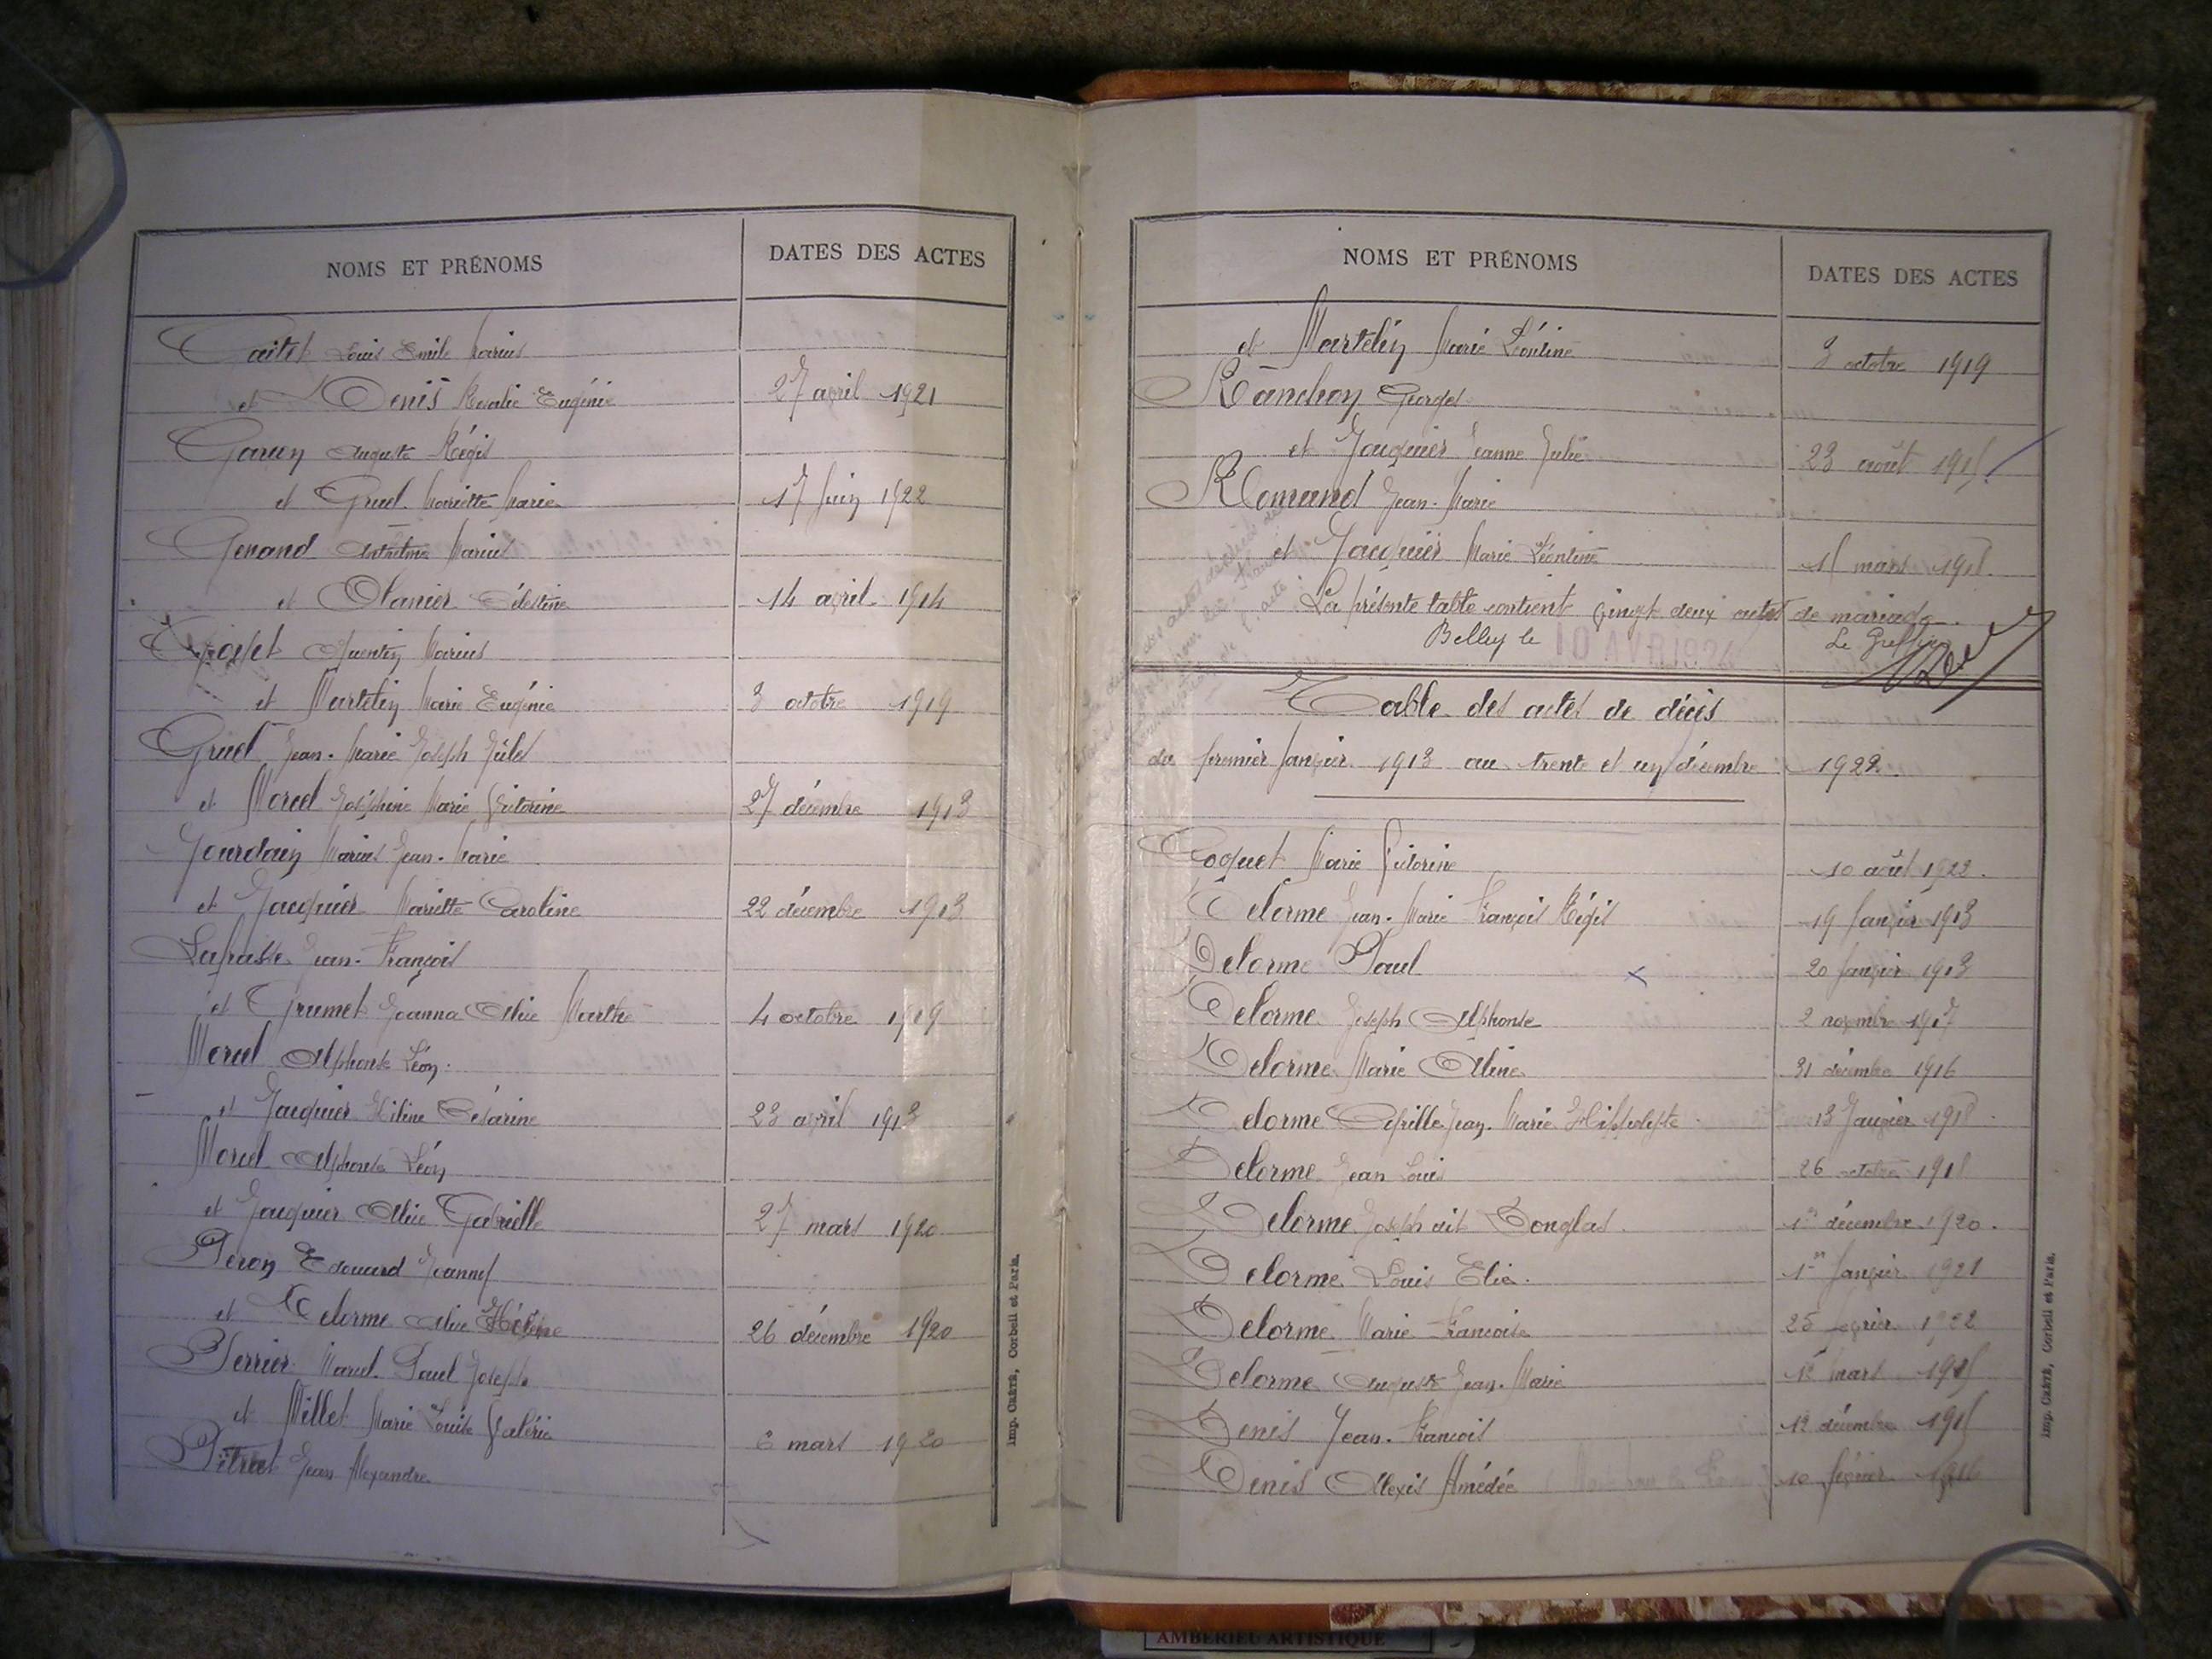 NOMS ET PRÉNOMS
DATES DES ACTES
Louis Emile Marius
et Denis Rosalie Eugénie 27 avril 1921
Auguste Régis
et Gruel Mariette Marie 17 juin 1922
Genand Anthelme Marius
et Olanier Célestine 14 avril 1914
Quentin Marius
et Martelin Marie Eugénie 3 octobre 1919
Gruel Jean-Marie Joseph Jules
et Morel Joséphine Marie Victorine 27 décembre 1913
Jourdain Marius Jean-Marie
et Jacquier Mariette Caroline 22 décembre 1913
Lafrasse Jean-François
et Grumet Joanna Alice Marthe 4 octobre 1919
Morel Alphonse Léon
et Jacquier Hélène Césarine 23 avril 1913
Morel Alphonse Léon
et Jacquier Alice Gabrielle 27 mars 1920
Peron Edouard Joanny
et Delorme Alice Hélène 26 décembre 1920
Perrier Marcel Paul Joseph
et Millet Marie Louise Valérie 6 mars 1920
Pétrat Jean Alexandre
Imp. Crété, Corbeil et Paris.
NOMS ET PRÉNOMS
DATES DES ACTES
et Martelin Marie Léontine 3 octobre 1919
Ranchon Georges
et Jacquier Jeanne Julie 23 août 1915
Romand Jean-Marie
et Jacquier Marie Léontine mars
La présente table contient vingt deux actes de mariage.
Belley le 10 AVR 1924 Le Greffier
Table des actes de décès
du premier janvier 1913 au trente et un décembre 1922.
Coquet Marie Victorine 10 août 1922.
Delorme Jean-Marie François Régis 19 janvier 1913
Delorme Paul 20 janvier 1913
Delorme Joseph Alphonse 2 novembre 1917
Delorme Marie Aline 31 décembre 1916
Delorme Cyrille Jean-Marie Hippolyte 13 Janvier 1918
Delorme Jean Louis 26 octobre 1918
Delorme Joseph dit Conglas 1er décembre 1920.
Delorme Louis Elie. 1er Janvier 1921
Delorme Marie Françoise 25 février 1922
Delorme Auguste Jean-Marie mars 1915
Denis Jean-François 12 décembre 1915
Denis Alexis Amédée 10 février 1916
Imp. Crété, Corbeil et Paris.
AMBERIEU ARTISTIQUE